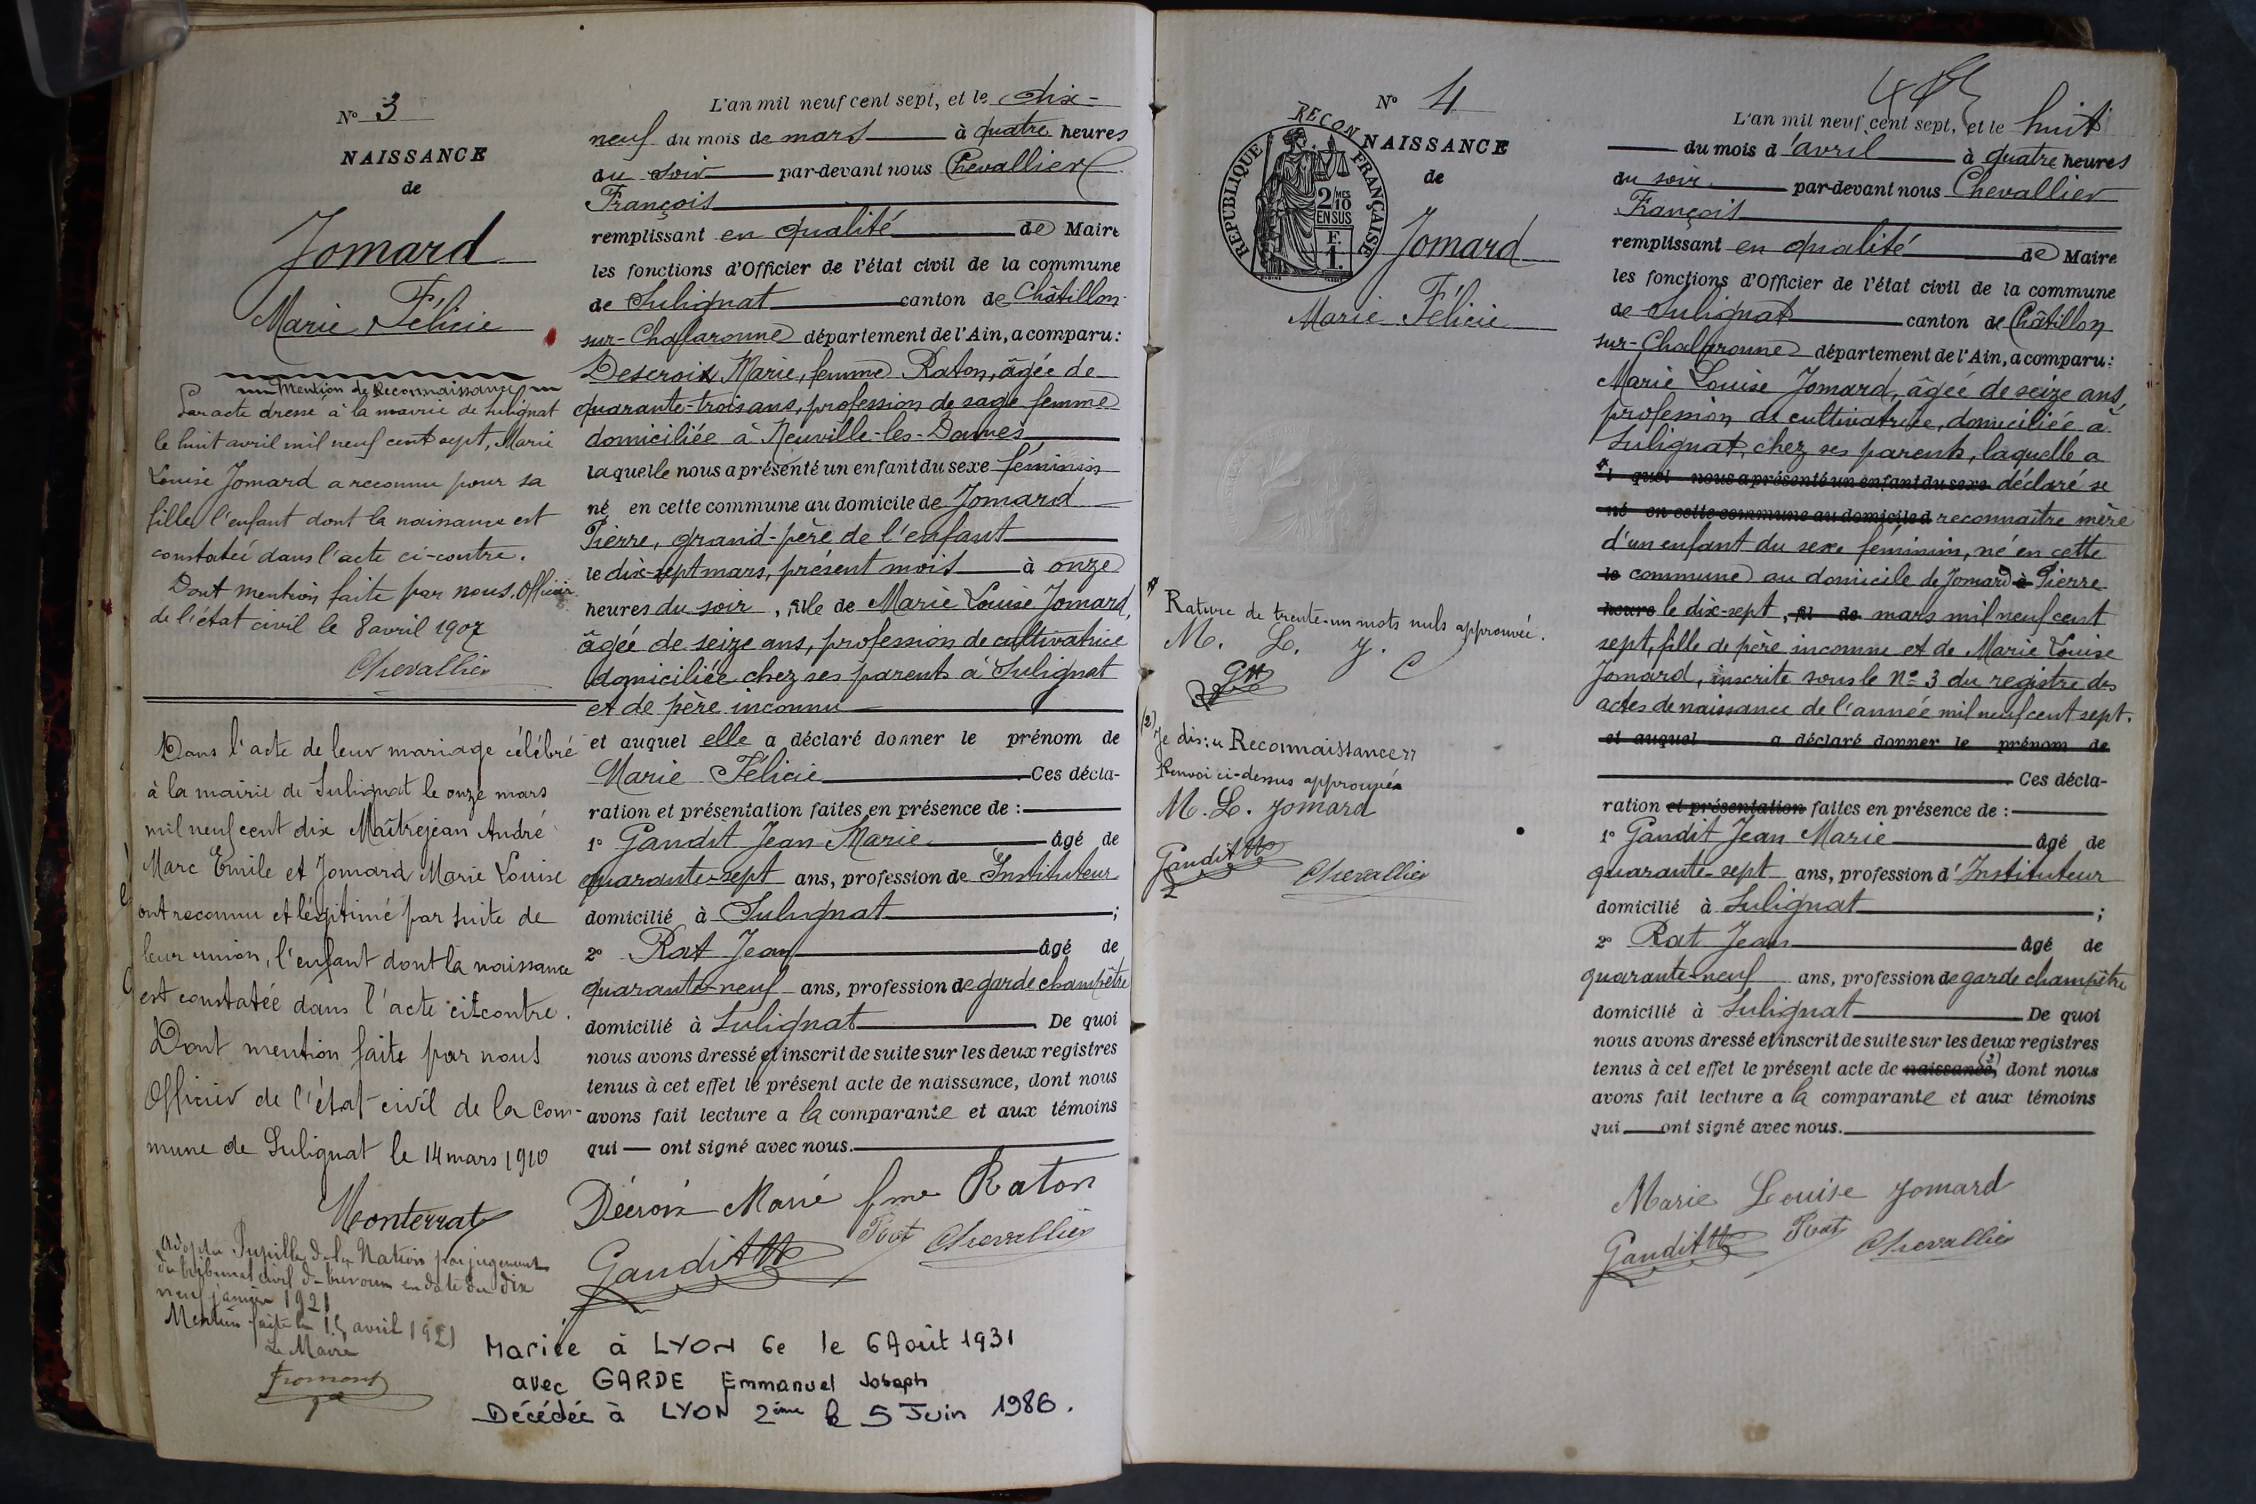 N° 3
NAISSANCE
de
Jomard
Marie Félicie
Mention de Reconnaissance
Par acte dressé à la mairie de Sulignat
le huit avril mil neuf cent sept, Marie
Louise Jomard a reconnu pour sa
fille l'enfant dont la naissance est
constatée dans l'acte ci-contre.
Dont mention faite par nous, Officier
de l'état civil le 8 avril 1907
Chevallier
Dans l'acte de leur mariage célébré
à la mairie de Sulignat le onze mars
mil neuf cent dix Maîtrejean André
Marc Emile et Jomard Marie Louise
ont reconnu et légitimé par suite de
leur union, l'enfant dont la naissance
est constatée dans l'acte ci-contre.
Dont mention faite par nous
Officier de l'état-civil de la com-
mune de Sulignat le 14 mars 1910
Monterrat
Adoptée Pupille de la Nation par jugement
du tribunal civil de Trévoux en date du dix
neuf janvier 1921
Mention faite le 15 avril 1921
Le Maire
Fromont
L'an mil neuf cent sept, et le dix-
neuf du mois de mars à quatre heures
du soir par-devant nous Chevallier
François
remplissant en qualité de Maire
les fonctions d'Officier de l'état civil de la commune
de Sulignat canton de Châtillon-
sur-Chalaronne département de l'Ain, a comparu :
Descroix Marie, femme Raton, âgée de
quarante-trois ans, profession de sage femme
domiciliée à Neuville-les-Dames
laquelle nous a présenté un enfant du sexe féminin
né en cette commune au domicile de Jomard
Pierre, grand-père de l'enfant
le dix-sept mars, présent mois à onze
heures du soir, fille de Marie Louise Jomard,
âgée de seize ans, profession de cultivatrice
domiciliée chez ses parents à Sulignat
et de père inconnu
et auquel elle a déclaré donner le prénom de
Marie Félicie Ces décla-
ration et présentation faites en présence de :
1° Gandit Jean Marie âgé de
quarante-sept ans, profession de Instituteur
domicilié à Sulignat ;
2° Rat Jean âgé de
quarante-neuf ans, profession de garde champêtre
domicilié à Sulignat De quoi
nous avons dressé et inscrit de suite sur les deux registres
tenus à cet effet le présent acte de naissance, dont nous
avons fait lecture a la comparante et aux témoins
qui — ont signé avec nous.
Décroix Marie fme Raton
Gandit Rat Chevallier
Mariée à LYON 6e le 6 Août 1931
avec GARDE Emmanuel Joseph
Décédée à LYON 2ème le 5 Juin 1986.
N° 4
RECONNAISSANCE
de
RÉPUBLIQUE FRANÇAISE
2/10 MES
EN SUS
F.
1.
Jomard
Marie Félicie
Rature de trente-un mots nuls approuvée.
M. L. J. C
Gtt
(2) Je dis: "Reconnaissance"
Renvoi ci-dessus approuvé
M. L. Jomard
Gandit
Chevallier
L'an mil neuf cent sept, et le huit
du mois d'avril à quatre heures
du soir par-devant nous Chevallier
François
remplissant en qualité de Maire
les fonctions d'Officier de l'état civil de la commune
de Sulignat canton de Châtillon
sur-Chalaronne département de l'Ain, a comparu :
Marie Louise Jomard, âgée de seize ans,
profession de cultivatrice, domiciliée à
Sulignat, chez ses parents, laquelle a
l quel nous a présenté un enfant du sexe déclaré se
né en cette commune au domicile d reconnaître mère
d'un enfant du sexe féminin, né en cette
le commune au domicile de Jomard à Pierre
heure le dix-sept, fil de mars mil neuf cent
sept, fille de père inconnu et de Marie Louise
Jomard, inscrite sous le N° 3 du registre des
actes de naissance de l'année mil neuf cent sept.
et auquel a déclaré donner le prénom de
Ces décla-
ration et présentation faites en présence de :
1° Gandit Jean Marie âgé de
quarante-sept ans, profession d'Instituteur
domicilié à Sulignat ;
2° Rat Jean âgé de
quarante-neuf ans, profession de garde champêtre
domicilié à Sulignat De quoi
nous avons dressé et inscrit de suite sur les deux registres
tenus à cet effet le présent acte de naissance, (2) dont nous
avons fait lecture a la comparante et aux témoins
qui ont signé avec nous.
Marie Louise Jomard
Gandit Rat Chevallier